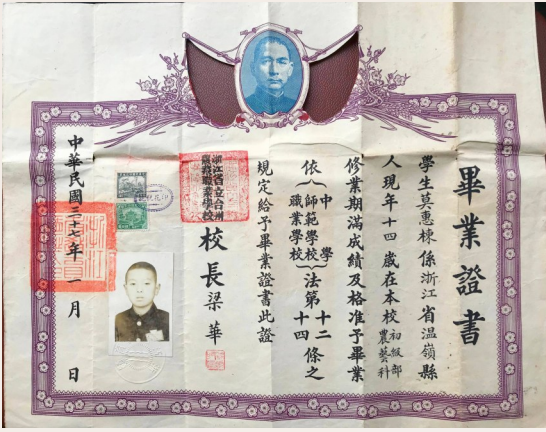 畢業證書
學生莫惠棟係浙江省溫嶺縣
人現年十四歲在本校初級部農藝科
修業期滿成績及格准予畢業
依中學師範學校職業學校法第十二十四條之
規定給予畢業證書此證
校長梁華
中華民國三十七年一月 日